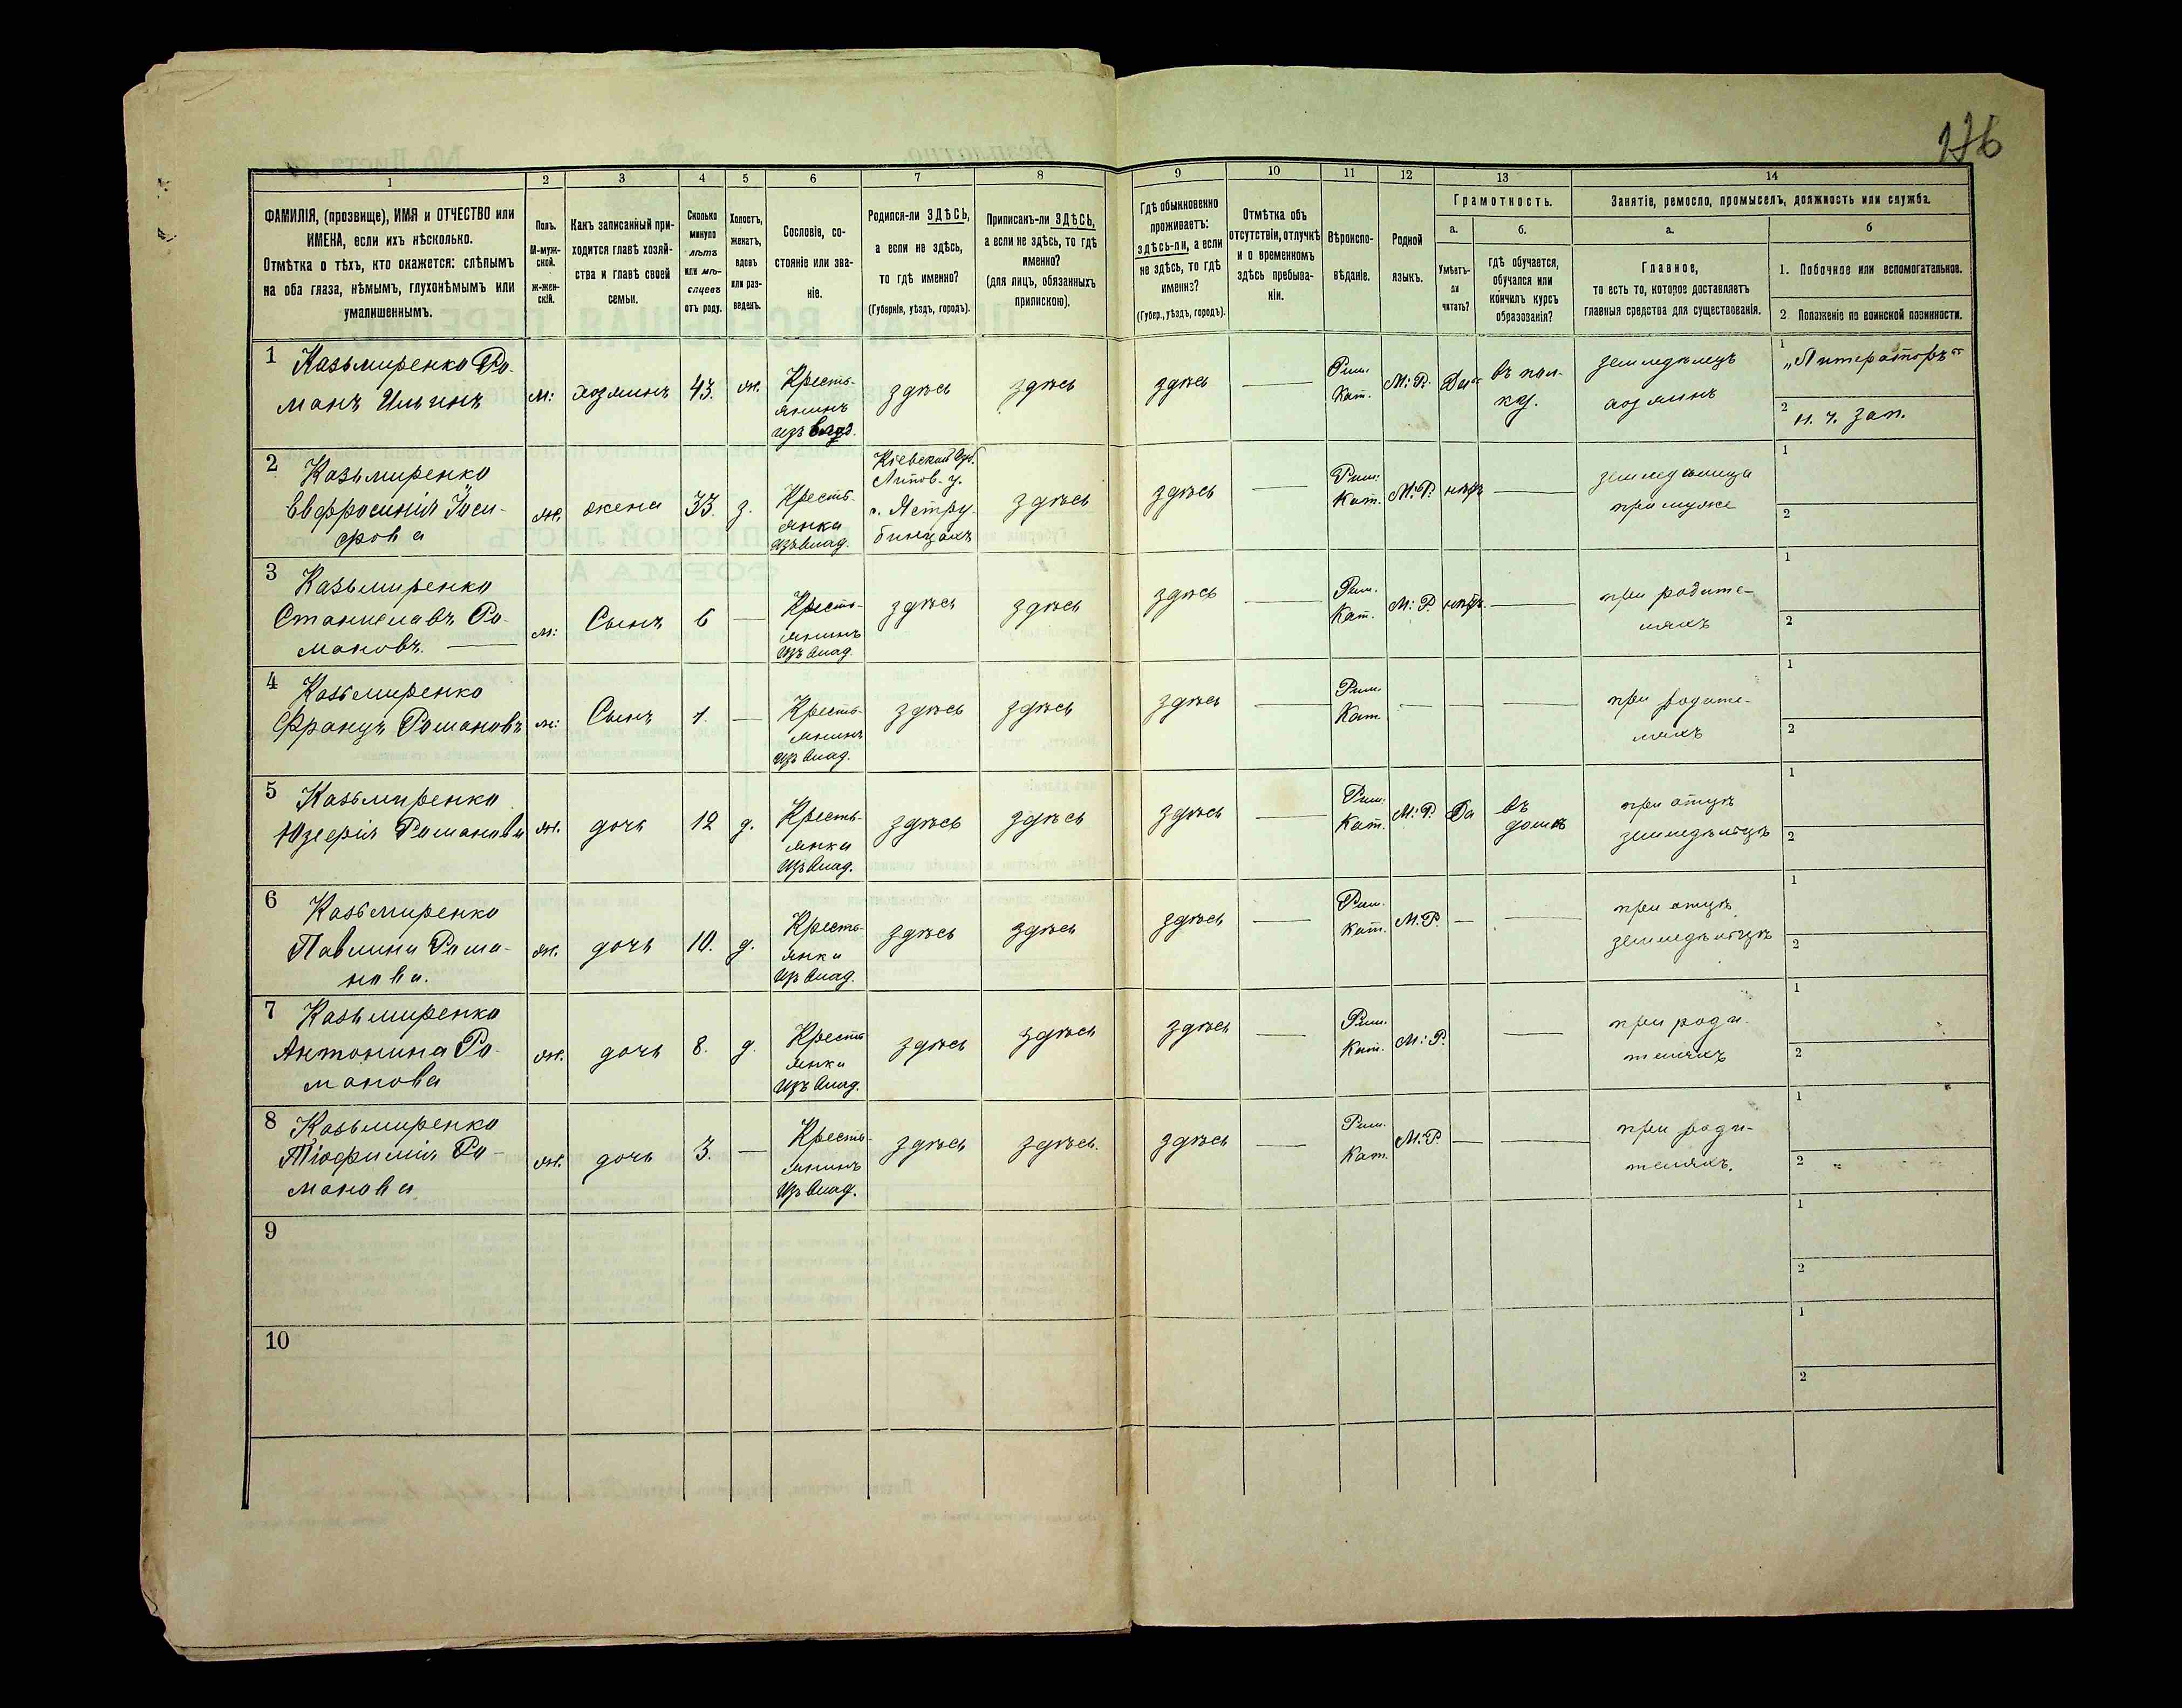 176
1
2
3
4
5
6
7
8
9
10
11
12
13
14
ФАМИЛІЯ, (прозвище), ИМЯ и ОТЧЕСТВО или
ИМЕНА, если ихъ нѣсколько.
Отмѣтка о тѣхъ, кто окажется: слѣпымъ
на оба глаза, нѣмымъ, глухонѣмымъ или
умалишеннымъ.
Полъ.
М-муж-
ской.
ж-жен-
скій.
Какъ записанный при-
ходится главѣ хозяй-
ства и главѣ своей
семьи.
Сколько
минуло
лѣтъ
или мѣ-
сяцевъ
отъ роду.
Холостъ,
женатъ,
вдовъ
или раз-
веденъ.
Сословіе, со-
стояніе или зва-
ніе.
Родился-ли ЗДѢСЬ,
а если не здѣсь,
то гдѣ именно?
(Губернія, уѣздъ, городъ).
Приписанъ-ли ЗДѢСЬ,
а если не здѣсь, то гдѣ
именно?
(для лицъ, обязанныхъ
припискою).
Гдѣ обыкновенно
проживаетъ:
здѣсь-ли, а если
не здѣсь, то гдѣ
именно?
(Губер., уѣздъ, городъ).
Отмѣтка объ
отсутствіи, отлучкѣ
и о временномъ
здѣсь пребыва-
ніи.
Вѣроиспо-
вѣданіе.
Родной
языкъ.
Грамотность.
а.
Умѣетъ-
ли
читать?
б.
гдѣ обучается,
обучался или
кончилъ курсъ
образованія?
Занятіе, ремосло, промыселъ, должность или служба.
а.
Главное,
то есть то, которое доставляетъ
главныя средства для существованія.
б
1. Побочное или вспомогательное.
2 Положеніе по воинской повинности.
1 Казьмиренко Ро-
манъ Ильинъ
м:
хозяинъ
43.
ж.
Кресть-
янинъ
изъ влад.
здѣсь
здѣсь
здѣсь
Рим.
Кат.
М: Р.
Да
въ пол-
ку.
земледѣлецъ
хозяинъ
1
2 н. ч. зап.
2 Казьмиренко
Евфросинія Іоси-
фова
ж.
жена
33.
з.
Кресть-
янка
изъ влад.
Кіевской Губ.
Липов. у.
с. Ястру-
бинцахъ
здѣсь
здѣсь
Рим:
Кат.
М: Р.
нѣтъ
земледѣлица
при мужѣ
1
2
3 Казьмиренко
Станиславъ Ро-
мановъ.
м:
Сынъ
6
Кресть-
янинъ
изъ влад.
здѣсь
здѣсь
здѣсь
Рим.
Кат.
М: Р.
нѣтъ.
при родите-
ляхъ
1
2
4 Казьмиренко
Францъ Романовъ
м:
Сынъ
1.
Кресть-
янинъ
изъ влад.
здѣсь
здѣсь
здѣсь
Рим.
Кат.
при родите-
ляхъ
1
2
5 Казьмиренко
Юзефія Романова
ж.
дочь
12
д.
Кресть-
янка
изъ влад.
здѣсь
здѣсь
здѣсь
Рим:
Кат.
М: Р.
Да
въ
домѣ
при отцѣ
земледѣльцѣ
1
2
6 Казьмиренко
Павлина Рома-
нова.
ж.
дочь
10.
д.
Кресть-
янка
изъ влад.
здѣсь
здѣсь
здѣсь
Рим.
Кат.
М. Р.
при отцѣ
земледѣльцѣ
1
2
7 Казьмиренко
Антонина Ро-
манова
ж.
дочь
8.
д.
Кресть
янка
изъ влад.
здѣсь
здѣсь
здѣсь
Рим.
Кат.
М: Р.
при роди-
теляхъ
1
2
8 Казьмиренко
Тіофилія Ро-
манова
ж.
дочь
3.
Кресть-
янинъ
изъ влад.
здѣсь
здѣсь.
здѣсь
Рим.
Кат.
М. Р.
при роди-
теляхъ.
1
2
9
1
2
10
1
2